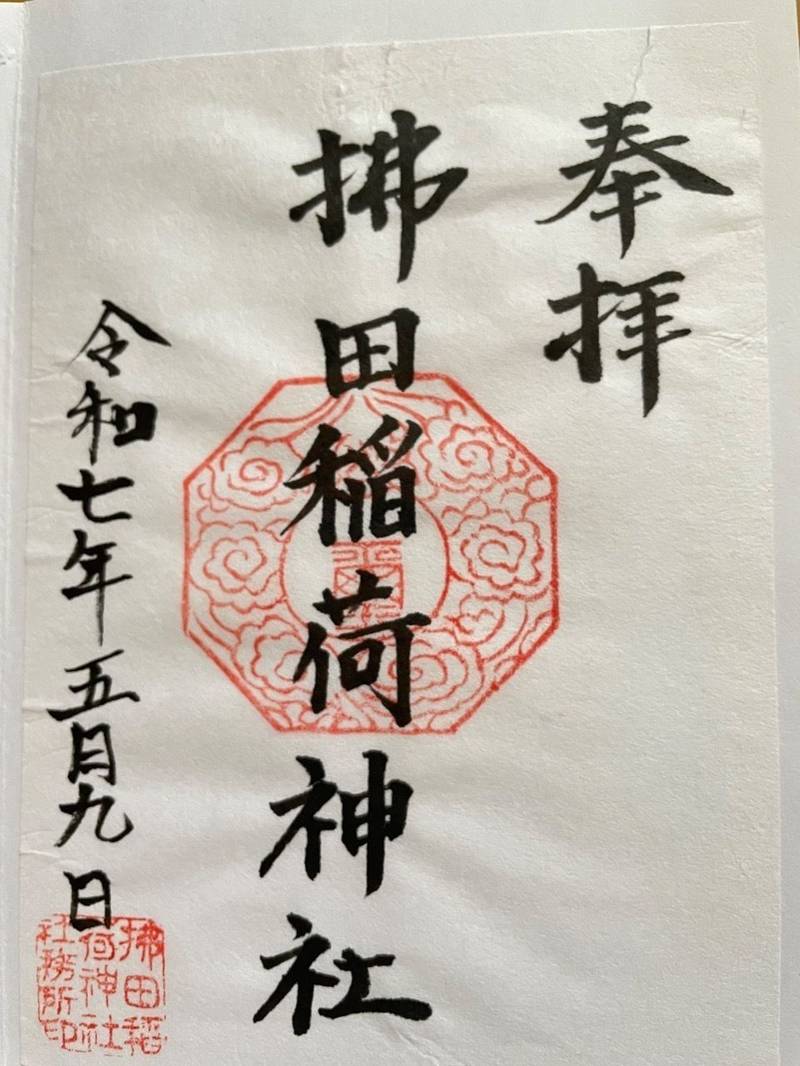 奉拝
拂田稲荷神社
令和七年五月九日
拂田稲
荷神社
社務所印